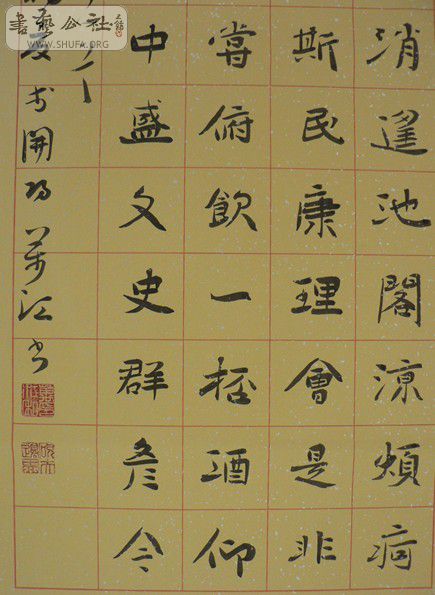 書藝公社
WWW.SHUFA.ORG
消遥池閣涼煩疴
斯民康理會是非
嘗俯飲一杯酒仰
中盛文史群彦今
夏於開萬江書